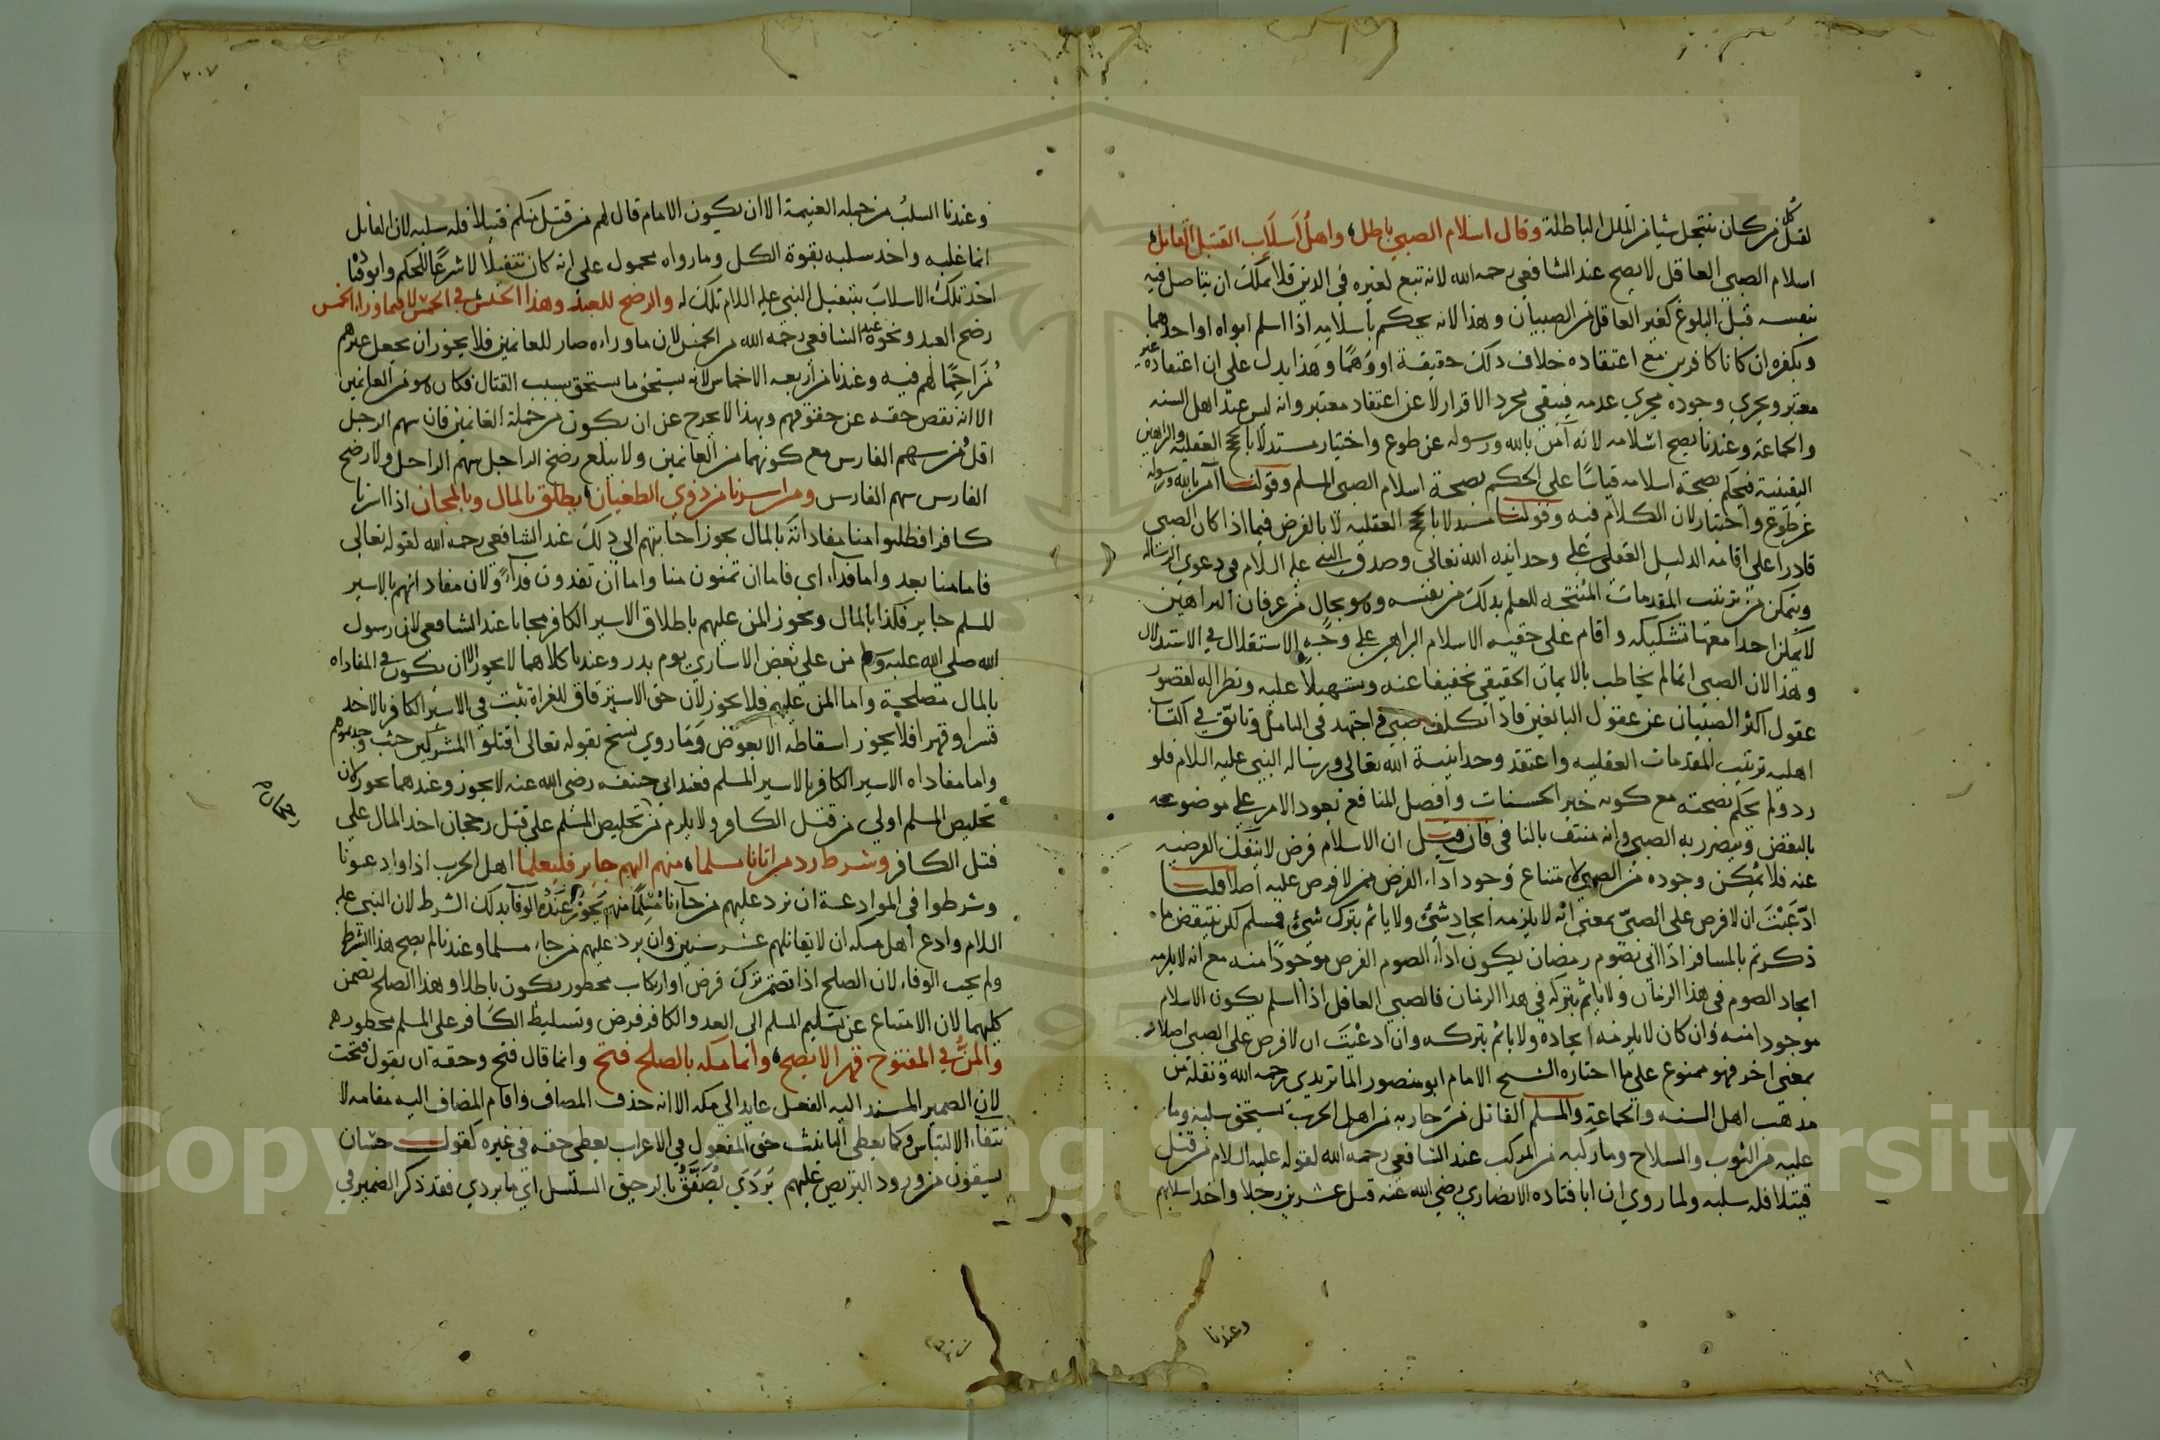 لقتل كل من كان ينتحل شيا من الملل الباطلة وقال اسلام الصبي باطل واهل اسلاب القتيل القاتل
اسلام الصبي العاقل لا يصح عند الشافعي رحمه الله لانه تبع لغيره في الدين فلا يملك ان يتاصل فيه
بنفسه قبل البلوغ كغير العاقل من الصبيان وهذا لانه يحكم باسلامه اذا اسلم ابواه او احدهما
وبكفره ان كانا كافرين مع اعتقاده خلاف ذلك حقيقة او وهما وهذا يدل على ان اعتقاده غير
معتبر ويجري وجوده مجري عدمه فيبقي مجرد الاقرار لا عن اعتقاد معتبر وانه ليس عند اهل السنه
والجماعة وعندنا يصح اسلامه لانه آمن بالله ورسوله عن طوع واختيار مستدلا بالحجج العقليه والبراهين
اليقينية فيحكم بصحة اسلامه قياسا على الحكم بصحة اسلام الصبي المسلم وقولنا آمن بالله ورسوله
عن طوع واختيار لان الكلام فيه وقولنا مستدلا بالحجج العقليه لانا نفرض فيما اذا كان الصبي
قادرا على اقامة الدليل العقلي على وحدانية الله تعالى وصدق النبي عليه السلام في دعوي الرسالة
ويتمكن من ترتيب المقدمات المنتجه للعلم بذلك من نفسه وهو بحال من عرفان البراهين
لا يمكن احدا معها تشكيكه واقام على حقيه الاسلام البراهين على وجه الاستقلال في الاستدلال
وهذا لان الصبي انما لم يخاطب بالايمان الحقيقي تخفيفا عنه وتسهيلا عليه ونظرا له لقصور
عقول اكثر الصبيان عن عقول البالغين فاذا تكلف صبي واجتهد في التامل وتانق في اكتساب
اهلية ترتيب المقدمات العقليه واعتقد وحدانية الله تعالى ورسالة النبي عليه السلام فلو
رد ولم يحكم بصحته مع كونه خير الحسنات وافضل المنافع يعود الامر على موضوعه
بالنقض ويتضرر به الصبي وانه منتف بالنافي فان قيل ان الاسلام فرض لا ينفك الفرضيه
عنه فلا يمكن وجوده من الصبي لامتناع وجود آداء الفرض ممن لا فرض عليه اصلا قلنا
ادعيت ان لا فرض على الصبي بمعنى انه لا يلزمه ايجاد شيء ولا ياثم بترك شيء فمسلم لكن ينتقض ما
ذكرتم بالمسافر اذا اتي بصوم رمضان يكون اداء الصوم الفرض موجودا منه مع انه لا يلزمه
ايجاد الصوم في هذا الزمان ولا ياثم بتركه في هذا الزمان فالصبي العاقل اذا اسلم يكون الاسلام
موجودا منه وان كان لا يلزمه ايجاده ولا ياثم بتركه وان ادعيت ان لا فرض على الصبي اصلا
بمعنى اخر فهو ممنوع على ما اختاره الشيخ الامام ابو منصور الماتريدي رحمه الله ونقله من
مذهب اهل السنه والجماعة والمسلم القاتل من حاربه من اهل الحرب يستحق سلبه وما
عليه من الثوب والسلاح وما ركبه من المركب عند الشافعي رحمه الله لقوله عليه السلام من قتل
قتيلا فله سلبه ولما روي ان ابا قتاده الانصاري رضي الله عنه قتل عشرين رجلا واخذ اسلابهم
وعندنا
٢٠٧
وعندنا السلب من جملة الغنيمة الا ان يكون الامام قال لهم من قتل منكم قتيلا فله سلبه لان القاتل
انما غلبه واخذ سلبه بقوة الكل وما رواه محمول على انه كان تنفيلا لا شرعا للحكم وابو قتا
اخذ تلك الاسلاب بتنفيل النبي عليه السلام تلك له والرضخ للعبد وهذا الجنس في الخمس لا فيما وراء الخمس
رضخ العبد ونحوه عند الشافعي رحمه الله من الخمس لان ما وراءه صار للغانمين فلا يجوز ان يجعل غيرهم
مزاحما لهم فيه وعندنا من اربعة الاخماس لانه يستحق ما يستحق بسبب القتال فكان هو من الغانمين
الا انه نقص حقه عن حقوقهم وبهذا لا يخرج عن ان يكون من جملة الغانمين فان سهم الرجل
اقل من سهم الفارس مع كونهما من الغانمين ولا يبلغ رضخ الراجل سهم الراجل ولا رضخ
الفارس سهم الفارس ومن اسرنا من ذوي الطغيان يطلق بالمال وبالمجان اذا اسرنا
كافرا فطلبوا منا مفاداته بالمال يجوز اجابتهم الي ذلك عند الشافعي رحمه الله لقوله تعالى
فاما منا بعد واما فداء اي فاما ان تمنون منا واما ان تفدون فداء ولان مفاداتهم بالاسير
المسلم جايز فكذا بالمال ويجوز المن عليهم باطلاق الاسير الكافر مجانا عند الشافعي لان رسول
الله صلى الله عليه وسلم من على بعض الاساري يوم بدر وعندنا كلاهما لا يجوز الا ان يكون في المفاداه
بالمال مصلحة واما المن عليهم فلا يجوز لان حق الاسترقاق للغزاة ثبت في الاسير الكافر بالاخذ
قسرا وقهرا فلا يجوز اسقاطه الا بعوض وما روي نسخ بقوله تعالى اقتلوا المشركين حيث وجدتموهم
واما مفاداه الاسير الكافر بالاسير المسلم فعند ابي حنيفه رضي الله عنه لا يجوز وعندهما يجوز لان
تخليص المسلم اولي من قتل الكافر ولا يلزم من تخليص المسلم على قتل رجحان اخذ المال على
رجحان
قتل الكافر وشرط رد من اتانا مسلما منهم اليهم جايز فليعلما اهل الحرب اذا وادعونا
وشرطوا في الموادعة ان نرد عليهم من جاءنا مسلما منهم يجوز عنده الوفا بذلك الشرط لان النبي عليه
السلام وادع اهل مكه ان لا يقاتلهم عشر سنين وان يرد عليهم من جاء مسلما وعندنا لم يصح هذا الشرط
ولم يجب الوفاء لان الصلح اذا تضمن ترك فرض او ارتكاب محظور يكون باطلا وهذا الصلح يضمن
كليهما لان الامتناع عن تسليم المسلم الى العدو الكافر فرض وتسليط الكافر على المسلم محظور
والمن في المفتوح قهرا لا يصح وانما مكه بالصلح فتح وانما قال فتح وحقه ان يقول فتحت
لان الضمير المسند اليه الفعل عايد الى مكه الا انه حذف المضاف واقام المضاف اليه مقامه لا
نتفاء الالتباس وكما يعطي التانيث حق المفعول في الاعراب يعطي حقه في غيره كقول حسان
يسقون من ورد البريص عليهم بردي يصفق بالرحيق السلسل اي ما بردي فقد ذكر الضمير في